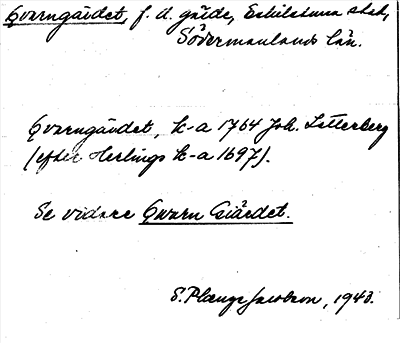 Qvarngärdet, f. d. gärde, Eskilstuna stad,
Södermanlands län.
Qvarngärdet, k-a 1764 Joh. Letterberg
(efter Herlings k-a 1697).
Se vidare Qwarn Giärdet.
S. Plænge Jacobson, 1943.